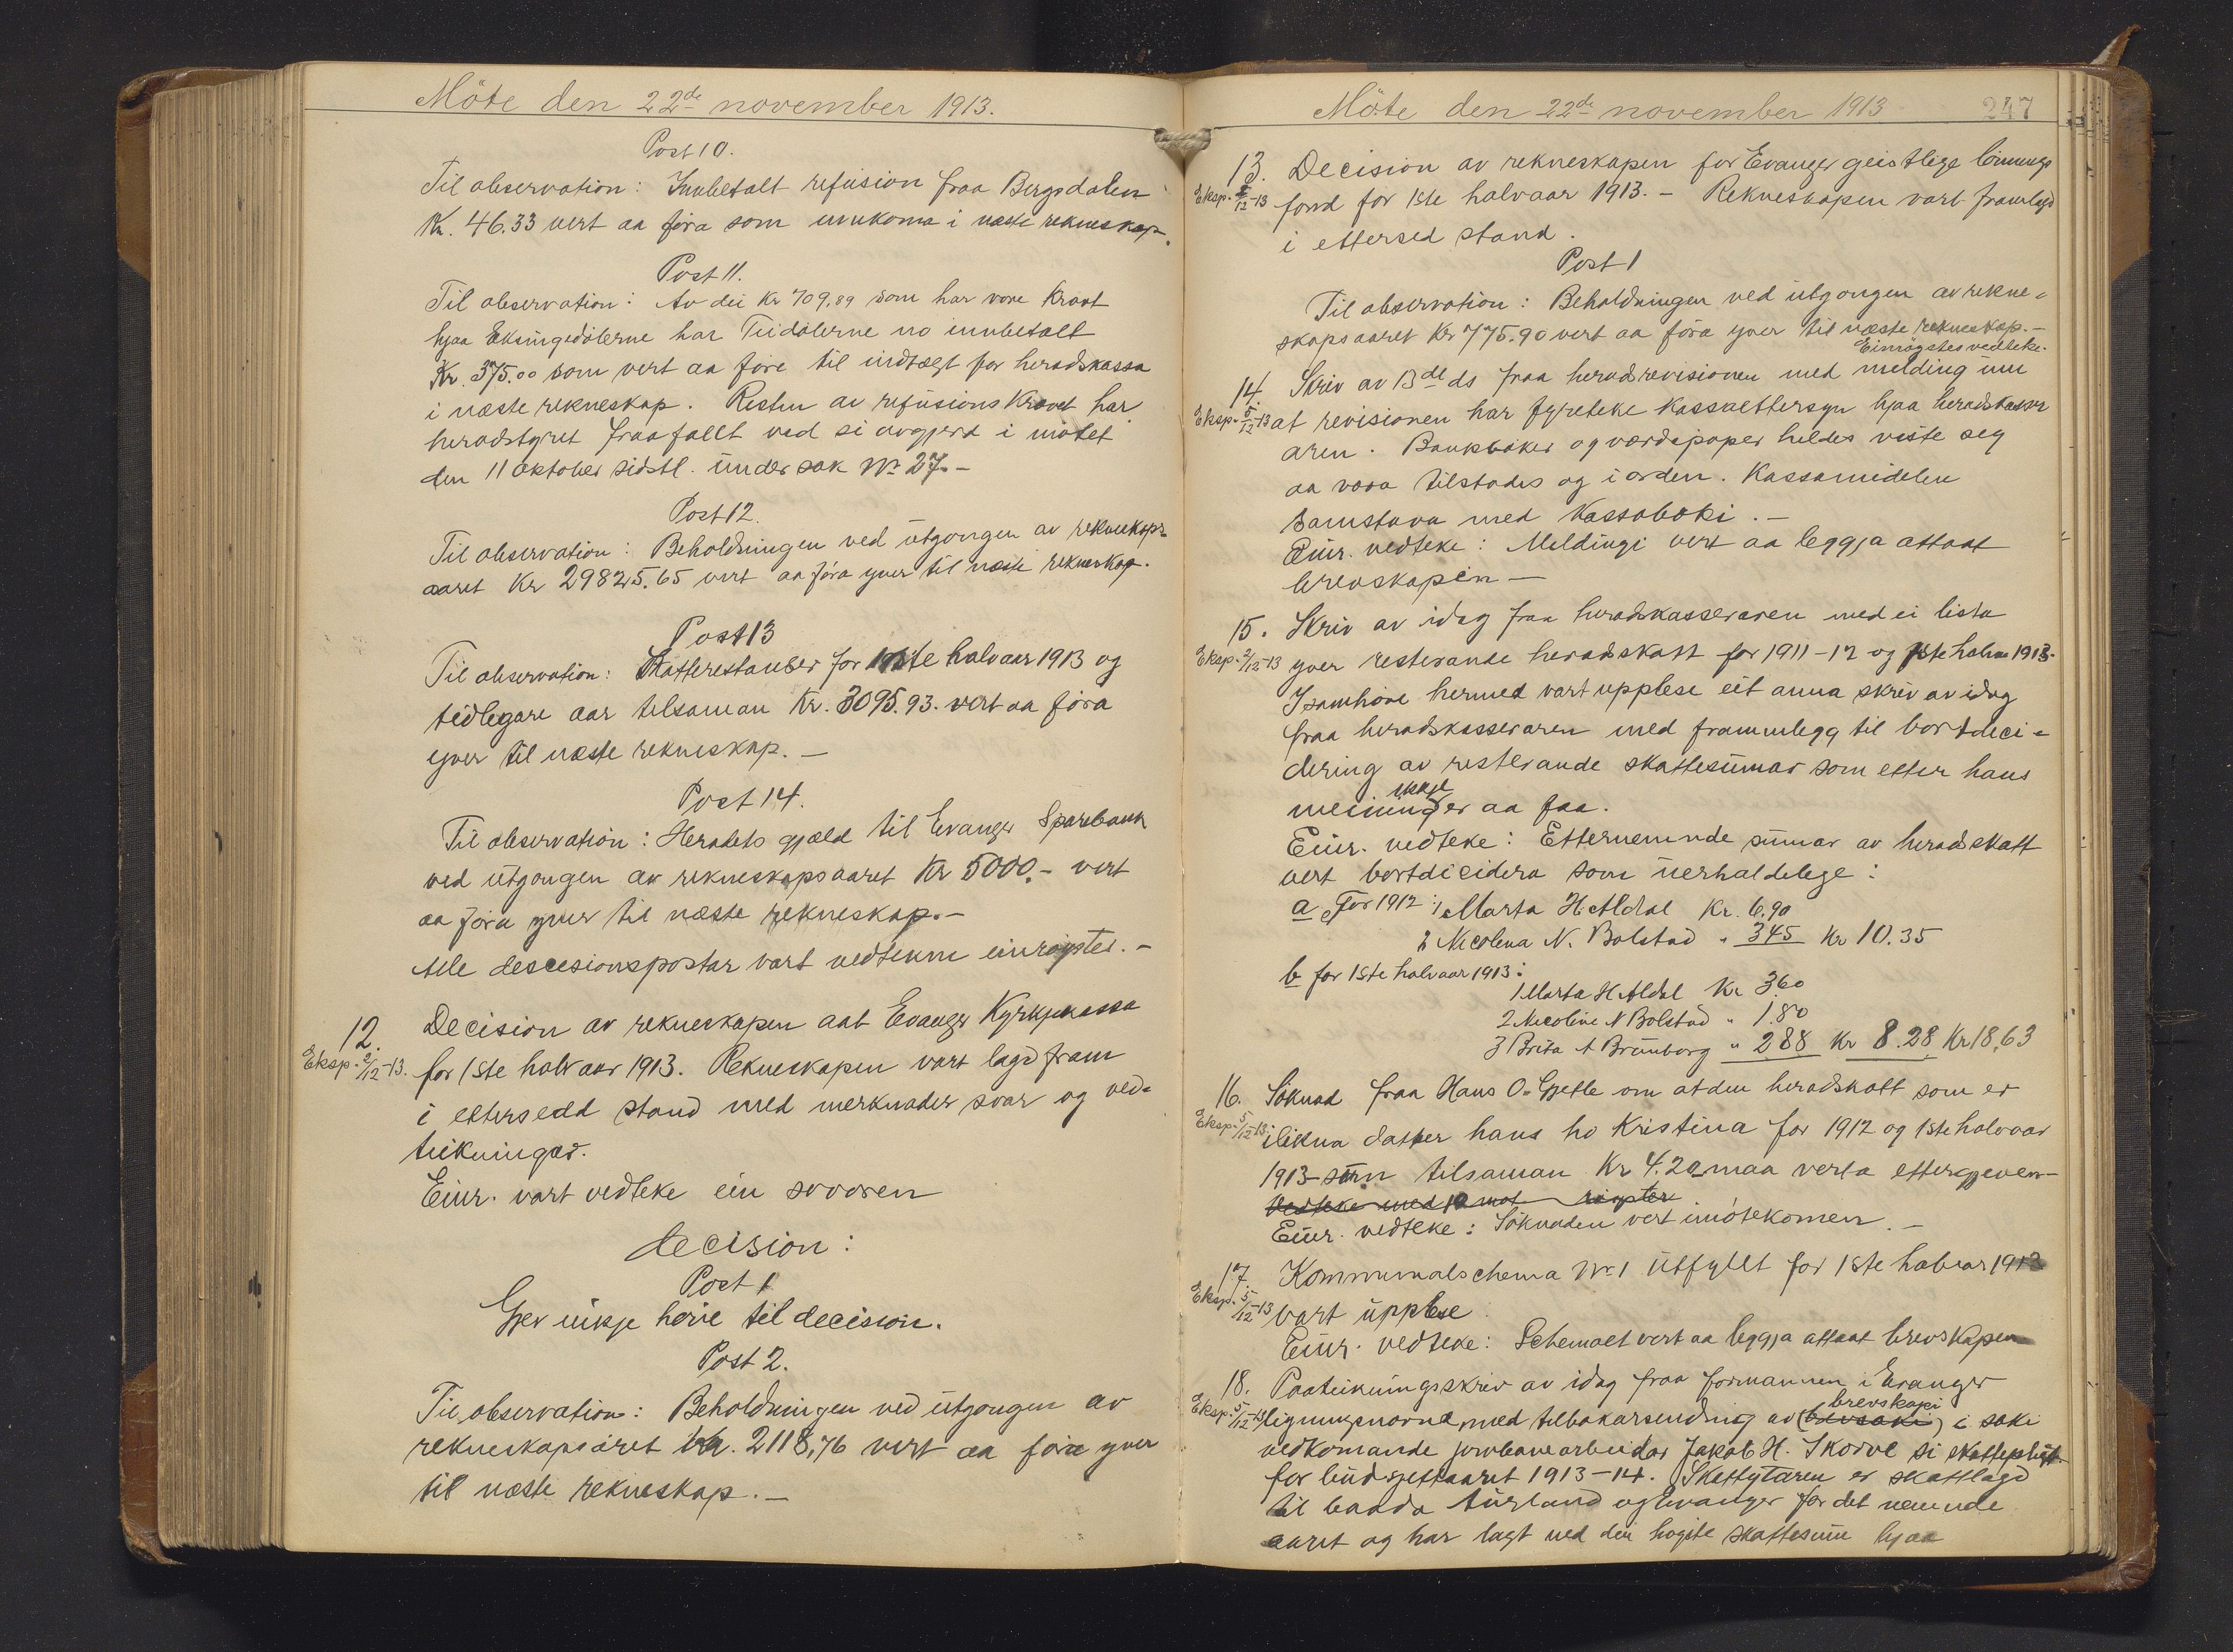 Möte den 22de november 1913.
Post 10.
Til observation: Innbetalt refusion fraa Bergsdalen
Kr. 46.33 vert aa föra som innkoma i næste rekneskap.
Post 11.
Til observation: Av dei Kr 709,89 som har vore kravt
hjaa Eksingedölerne har Teidölerne no innbetalt
Kr. 375.00 som vert aa före til indtægt for heradskassa
i næste rekneskap. Resten av refusionskravet har
heradstyret fraafallt ved si avgjerd i mötet
den 11 oktober sidstl. under sak No 27.-
Post 12.
Til observation: Beholdningen ved utgongen av rekneskaps-
aaret Kr 29825.65 vert aa föra yver til næste rekneskap.
Post 13
Til observation: Skatterestanser for 1ste halvaar 1913 og
tidlegare aar tilsaman Kr. 3095.93. vert aa föra
yver til næste rekneskap.-
Post 14.
Til observation: Heradets gjæld til Evanger Sparebank
ved utgongen av rekneskapsaaret Kr 5000.- vert
aa föra yver til næste rekneskap.-
Alle descesionspostar vart vedtekne einröystes.-
12. Decision av rekneskapen aat Evanger Kyrkjekassa
Eksp. 2/12-13. for 1ste halvaar 1913. Rekneskapen vart lagd fram
i ettersedd stand med merknader svar og ved-
teikningar.
Einr. vart vedteke ein sovoren
decision:
Post 1
Gjev inkje höve til decision.
Post 2.
Til observation: Beholdningen ved utgongen av
rekneskapsåret Kr. 2118,76 vert aa föra yver
til næste rekneskap.-
Möte den 22de november 1913 247
13. Decision av rekneskapen for Evanger geistlege lönnings
Eksp. 5/12-13 fond for 1ste halvaar 1913.- Rekneskapen vart framlagd
i ettersed stand.
Post 1
Til observation: Beholdningen ved utgongen av rekne-
skapsaaret Kr 775.90 vert aa föra yver til næste rekneskap.-
Einrögstes vedteke.
14. Skriv av 13de ds fraa heradrevisionen med melding um
Eksp. 5/12-13 at revisionen har fyreteke kassaettersyn hjaa heradskasser
aren. Bankböker og verdepaper heldes viste seg
aa vera tilstades og i orden. Kassamidelen
samstava med Kassaboki.-
Einr. vedteke: Meldingi vert aa leggja attaat
brevskapen-
15. Skriv av idag fraa heradskasseraren med ei lista
Eksp. 2/12-13 yver resterande heradskatt for 1911-12 og 1ste halvaar 1913.
I samhöve hermed vart upplese eit anna skriv av idag
fraa heradskasseraren med frammlegg til bortdeci-
dering av resterande skattesumar som etter hans
meining ikkje er aa faa.
Einr. vedteke: Etternemnde sumar av heradskatt
vert bortdicidera som uerhaldelege:
a For 1912: 1 Marta H. Aldal Kr. 6.90
2 Nicolina N. Bolstad " 345 Kr 10.35
b for 1ste halvaar 1913:
1 Marta H. Aldal Kr 3.60
2 Nicoline N Bolstad " 1.80
3 Brita A Brunborg " 288 Kr 8.28 Kr 18,63
16. Söknad fraa Hans O. Gjetle om at den heradskatt som er
Eksp. 5/12-13. ilikna datter hans ho Kristina for 1912 og 1ste halvaar
1913 - sum tilsaman Kr 4.20 maa verta ettergjeven-
Vedteke med 10 mot röyster
Einr. vedteke: Söknaden vert imötekomen.-
17. Kommunalschema No 1 utfyllt for 1ste halvaar 1913
Eksp. 5/12-13 vart upplese
Einr. vedteke: Schemaet vert aa leggja attaat brevskapen
18. Paateikningsskriv av idag fraa formannen i Evanger
Eksp. 5/12-13 ligningsnevnd, med tilbakarsending av brevskapi i saki
vedkomande jernbanearbeidar Jakob H. Skorve si skatteplikt
for budsjettaaret 1913-14. Skattytaren er skattlagd
til baada Aurland og Evanger for det nemnde
aaret og har lagt ned dei hogste skattesum hjaa